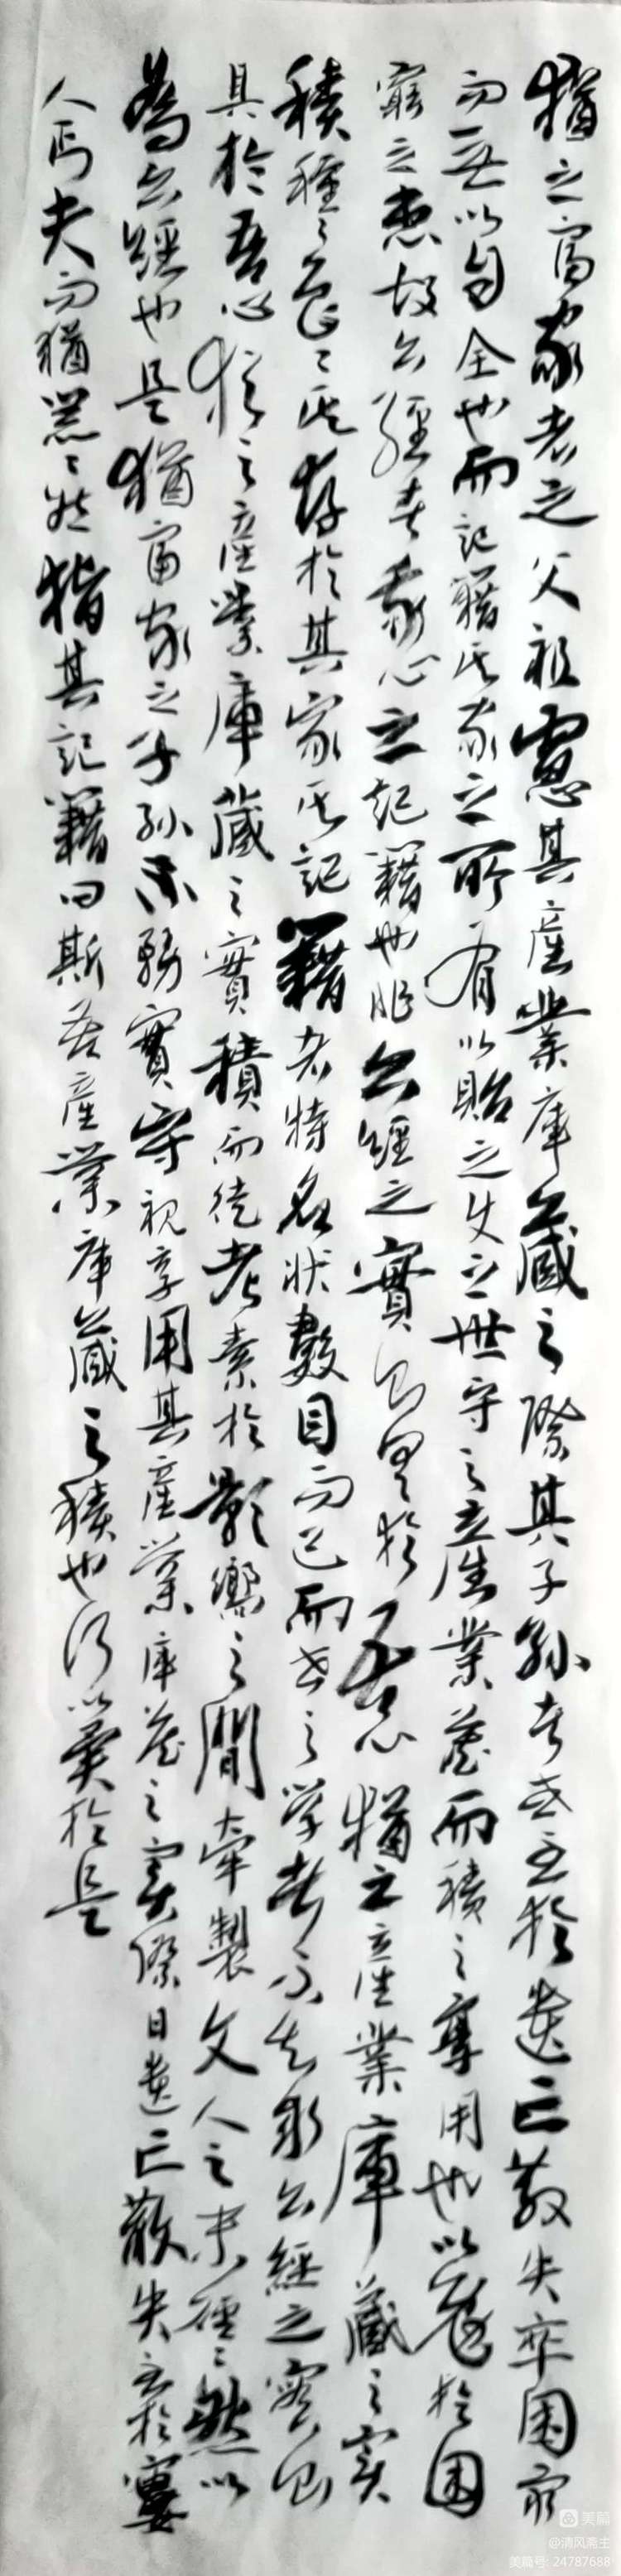 猶之富家者之父祖慮其產業庫藏之際其子孫者或至於遺亡散失卒困窮
而無以自全也而記籍其家之所有以貽之使之世守之產業藏而積之享用也以免於困
窮之患故六經者吾心之記籍也六經之實則具於吾心猶之產業庫藏之實
積種々色々其存於其家其記籍者特名狀數目而已而世之學者不知求六經之實則
具於吾心猶之產業庫藏之實積而徒考索於影響之間牽製文人之末硜々然以
為六經也是猶富家之子孫不務實守視享用其產業庫藏之實際日遺亡散失至於窶
人丐夫而猶囂々然指其記籍曰斯吾產業庫藏之積也何以異於是
美篇
@清风斋主
美篇号: 24787688